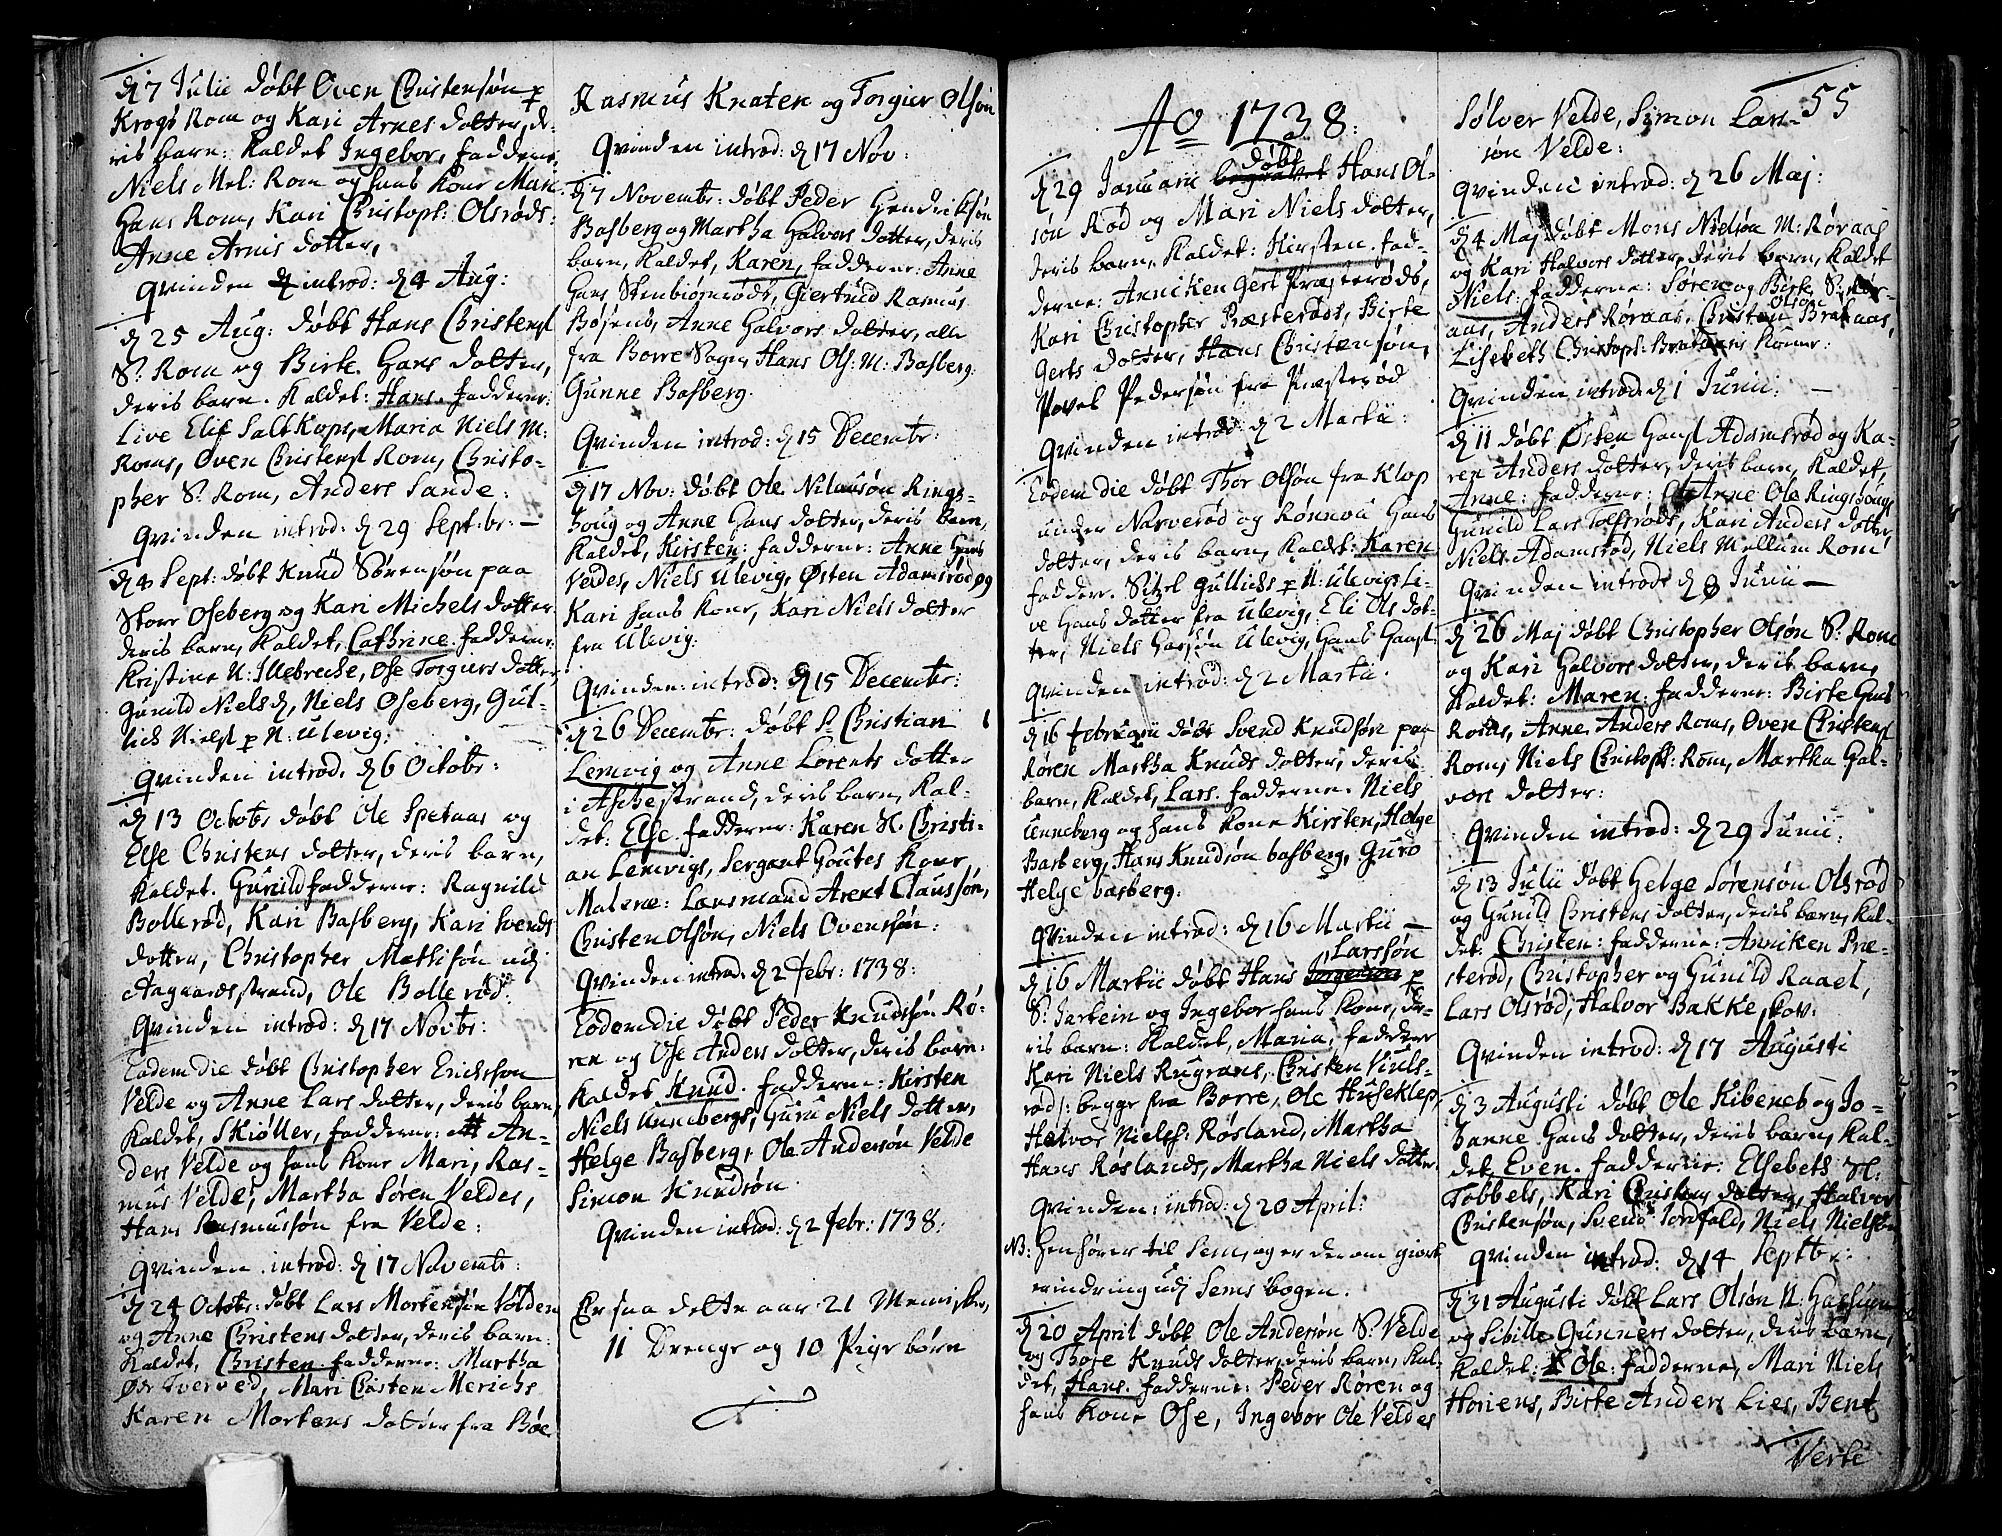 d 7 Julii døbt Oven Christensøn p
Krogs Rom og Kari Arnes dotter, de-
ris barn: Kaldet Ingebor, fadderne,
Niels Mel: Rom og hans Kone Mari
Hans Rom, Kari Christoph: Olsrøds:
Anne Arnis dotter,
Qvinden introd: d 4 Aug:
d 25 Aug: døbt Hans Christensl
S: Rom og Birte Hans dotter,
deris barn. Kaldet: Hans. fadderne:
Live Elif Saltkops, Maria Niels M:
Roms, Oven Christensl Rom, Christo-
pher S: Rom, Anders Sande:
Qvinden introd: d 29 Septbr: —
d 4 Sept: døbt Knud Sørensøn paa
Store Oseberg og Kari Michels dotter
deris barn, Kaldet, Cathrine. fadderne,
Kristine N: Illebrecke, Ose Torgiers dotter,
Gunild Nielsd, Niels Oseberg, Gul-
lich Nielsl p N: Ulevig:
Qvinden introd. d 6 Octobr:
d 13 Octobr døbt Ole Spetaas og
Else Christens dotter, deris barn,
Kaldet. Gunild fadderne: Ragnild
Bollerød, Kari Basberg, Kari Svends
dotter, Christopher Mathisøn udj
Aagaardstrand, Ole Bollerød:
Qvinden introd: d 17 Novbr:
Eodem die døbt Christopher Ericksson
Velde og Anne Lars dotter, deris barn,
Kaldet, Skiøller, fadderne: An-
ders Velde og hans Kone Mari, Ras-
mus Velde, Martha Søren Veldes,
Hans Rasmussøn fra Velde:
Qvinden introd: d 17 Novembr:
d 24 Octobr: døbt Lars Mortensøn Volden
og Anne Christens dotter, deris barn:
Kaldet, Christen. fadderne: Martha
Ode Tverved, Mari Christen Merichs
Karen Mortens dotter fra Bøe
Rasmus Knaten og Torgier Olsøn
Qvinden introd: d 17 Nov:
d 7 Novembr: døbt Peder Hendriksøn
Basberg og Martha Halvors dotter, deris
barn, Kaldet, Karen, fadderne: Anne
Hans Stenbiørnrøds, Giertrud Rasmus
Bøsens, Anne Halvors dotter, alle
fra Borre Sogn, Hans Ols: M: Basberg
Gunne Basberg.
Qvinden introd: d 15 Decembr:
d 17 Nov: døbt Ole Nilausøn Rings-
houg og Anne Hans dotter, deris barn,
Kaldet, Kirsten: fadderne: Anne Hans
Veldes, Niels Ulevig, Østen Adamsrød og
Kari hans Kone, Kari Niels dotter
fra Ulevig:
Qvinden: introd: d 15 Decembr:
d 26 Decembr: døbt Sr Christian
Lemvig og Anne Lorents dotter
i Aschestrand, deris barn, Kal-
det: Else. fadderne: Karen Hr Christi-
an Lemvigs, Sergant Goutes Kone,
Malene: Lænsmand Arent Claussøn,
Christen Olsøn, Niels Ovensøn:
Qvinden introd: d 2 Febr: 1738:
Eodem die døbt Peder Knudsøn Rø-
ren og Ose Anders dotter, deris barn:
Kaldet, Knud. fadderne: Kirsten
Niels Unnebergs, Guru Niels dotter,
Helge Basberg, Ole Andersøn Velde
Simon Knudsøn.
Qvinden introd: d 2 Febr: 1738:
Er saa dette aar: 21 Mennisker,
11 Drenge og 10 Pige børn
Ao 1738:
døbt
d 29 Januarii begravet Hans Ol-
søn Rød og Mari Niels dotter,
deris barn, Kaldet: Kirsten. fad-
derne: Anniken Gert Præsterøds,
Kari Christopher Præsterøds, Birte
Gerts dotter, Hans Christensøn,
Povel Pedersøn fra Præsterød
Qvinden introd: d 2 Martii:
Eodem die døbt Thor Olsøn fra Klop
under Narverød og Rønnou Hans
dotter, deris barn, Kaldet: Karen
fadder. Sitzel Gullichs p N: Ulevig, Li-
ve Hans dotter fra Ulevig, Eli Ols dot-
ter, Niels Ulevig, Hans Hansl.
Qvinden introd: d 2 Martii:
d 16 Februarii døbt Svend Knudsøn paa
Røren Martha Knuds dotter, deris
barn, Kaldet, Lars. fadderne. Niels
Unneberg og hans Kone Kirsten, Helge
Basberg, Hans Knudsøn basberg, Guro
Helge basberg.
Qvinden introd: d 16 Martii —
Larssøn
d 16 Martii døbt Hans p
S: Jarlein og Ingebor hans Kone, de-
ris barn: Kaldet, Maria, fadder
Kari Niels Rugrans, Christen Viuls-
rød /: begge fra Borre, Ole Huseklep,
Halvor Nielss: Røsland, Martha
Hans Røslands, Martha Niels dotter.
Qvinden: introd: d 20 April:
NB: Henhører til Sem, og er derom giort
erindring udj Sems bogen.
d 20 April døbt Ole Andersøn S: Velde
og Thore Knuds dotter, deris barn, Kal-
det, Hans. fadderne: Peder Røren og
hans Kone Ose, Ingebor Ole Veldes
55
Sølver Velde, Simon Lars-
søn Velde:
Qvinden introd: d 26 Maj:
d 4 Maj døbt Mons Nielsøn M: Røraas
og Kari Halvors dotter, deris barn, Kaldet
Niels. fadderne: Søren og Birte S: Rør-
aas, Anders Røraas. Christen Olsøn Brataas,
Lisebeth Christoph: Brataas Kone:
Qvinden introd: d 1 Junii: —
d 11 døbt Østen Hansl Adamsrød og Ka-
ren Anders dotter, deris barn, Kaldet,
Anne: fadderne: Anne Ole Ringshougs
Gunild Lars Tolfsrøds, Kari Anders dotter,
Niels Adamsrød, Niels Mellum Rom
Qvinden introd: d 8 Junii —
d 26 Maj døbt Christopher Olsøn S: Rom
og Kari Halvors dotter, deris barn,
Kaldet: Maren: fadderne: Birte Hans
Roms, Anne Anders Roms, Oven Christensl
Rom, Niels Christoph: Rom, Martha Hal-
vors dotter:
Qvinden introd: d 29 Junii:
d 13 Julii døbt Helge Sørensøn Olsrød
og Gunild Christens dotter, deris barn, Kal-
det: Christen: fadderne: Anniken Præ-
sterød, Christopher og Gunild Raael,
Lars Olsrød, Halvor Bakke skov:
Qvinden introd: d 17 Augusti
d 3 Augusti døbt Ole Kibeneb og Jo-
hanne Hans dotter, deris barn, Kal-
det. Even. fadderne: Elsebeth Hr
Tobbels, Kari Christens dotter, Halvor
Christensøn, Svend Jordfald, Niels Nielsøn
Qvinden introd: d 14 Septbr:
d 31 Augusti døbt Lars Olsøn N:
og Sibille Gunners dotter, deris barn,
Kaldet: Ole: fadderne, Mari Niels
Horiens, Birte Anders Lies, Bent
Verte